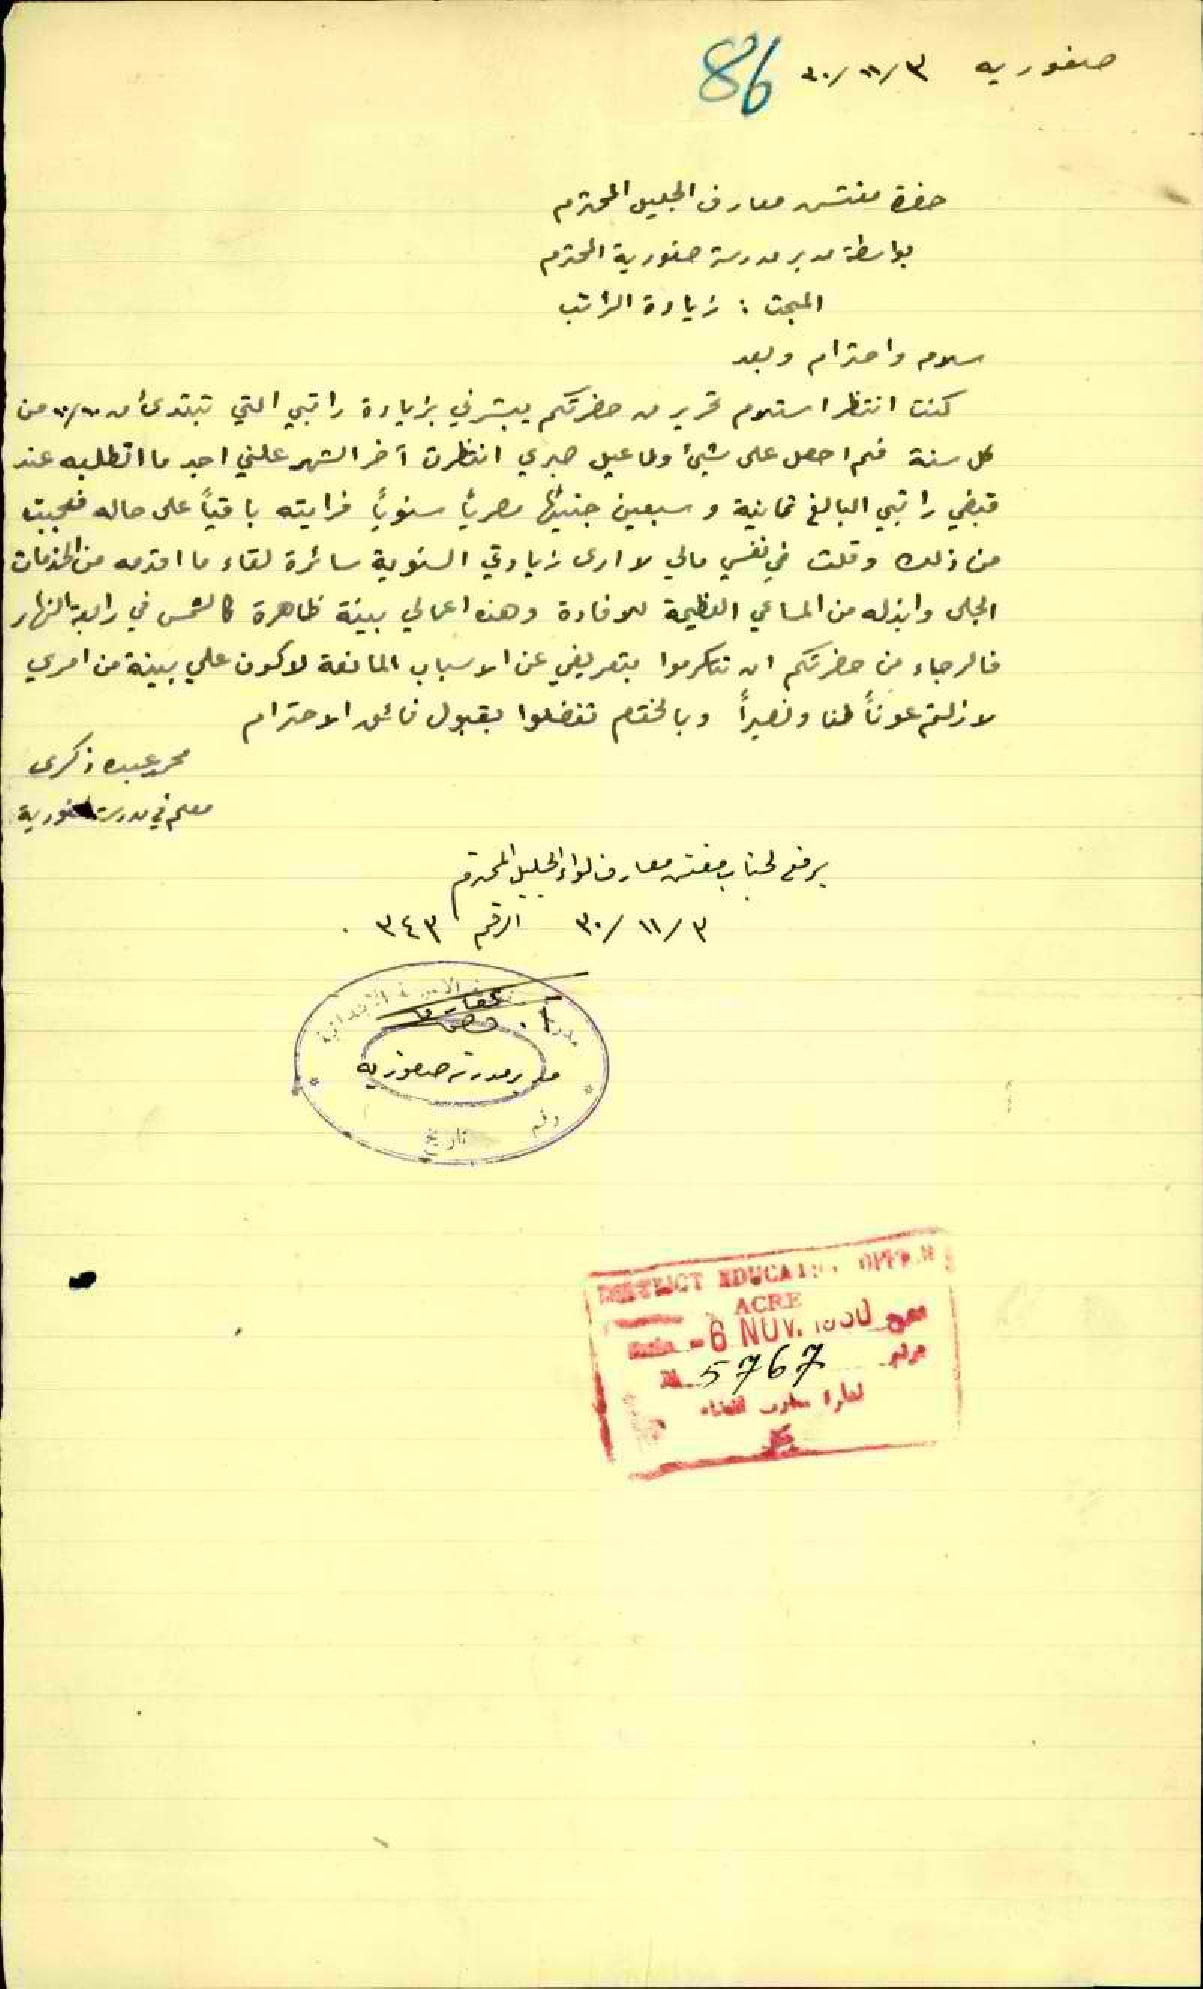 صفوريه ٣/١١/٣٠
86
حضرة مفتش معارف الجليل المحترم
بواسطة مدير مدرسة صفورية المحترم
المبحث : زيادة الراتب
سلام واحترام وبعد
كنت انتظر استلام تحرير من حضرتكم يبشرني بزيادة راتبي التي تبتدئ من ١/١٠ من
كل سنة فلم احصل على شيئ ولما عيل صبري انتظرت آخر الشهر علني اجد ما اتطلبه عند
قبضي راتبي البالغ ثمانية وسبعين جنيهاً مصرياً سنوياً فرايته باقياً على حاله فعجبت
من ذلك وقلت في نفسي مالي لا ارى زيادتي السنوية سائرة لقاء ما اقدمه من الخدمات
الجلى وابذله من المساعي العظيمة للافادة وهذه اعمالي بينة ظاهرة كالشمس في رابعة النهار
فالرجاء من حضرتكم ان تتكرموا بتعريفي عن الاسباب المانعة لاكون على بينة من امري
لا زلتم عوناً لنا ونصيراً وبالختام تفضلوا بقبول فائق الاحترام
محمد عبده زكرى
معلم في مدرسة صفورية
يرفع لجناب مفتش معارف لواء الجليل المحترم
٣/١١/٣٠ الرقم ٣٤٣
مدير مدرسة صفوريه
رقم تاريخ
DISTRICT EDUCATION OFFICE
ACRE
-6 NOV. 1930
5767
ادارة معارف قضاء
عكا